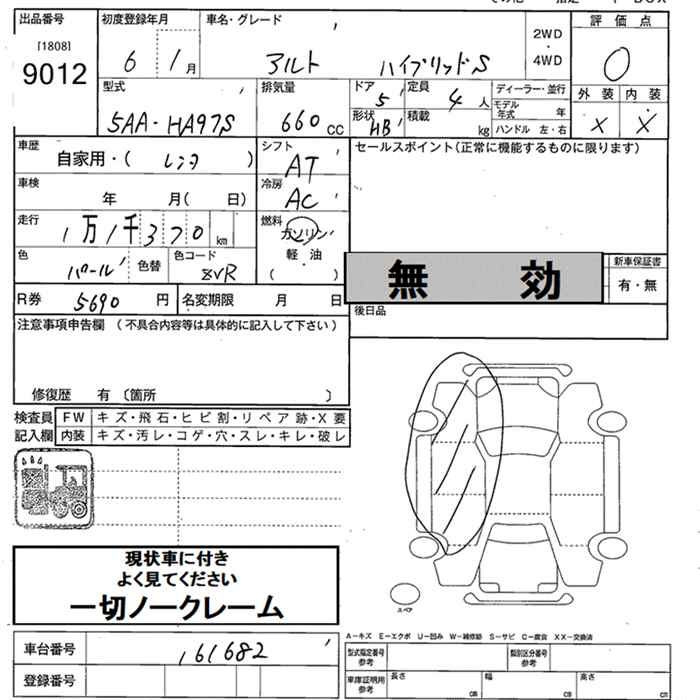 出品番号 [1808] 9012
初度登録年月 6 1月
車名・グレード アルト ハイブリッドS
2WD・4WD
評価点 0
外装 X 内装 X
型式 5AA-HA97S
排気量 660cc
ドア 5 定員 4人
形状 HB 積載 kg
ディーラー・並行
モデル年式 年
ハンドル 左・右
車歴 自家用・( レンタ )
シフト AT
セールスポイント(正常に機能するものに限ります)
車検 年 月( 日)
冷房 AC
走行 1万1千370km
燃料 ガソリン 軽油 ( )
色 パール 色替 色コード ZVR
無効
新車保証書 有・無
R券 5690円 名変期限 月 日
後日品
注意事項申告欄(不具合内容等は具体的に記入して下さい)
修復歴 有〔箇所 〕
検査員記入欄 FW キズ・飛石・ヒビ割・リペア跡・X要
内装 キズ・汚レ・コゲ・穴・スレ・キレ・破レ
現状車に付き
よく見てください
一切ノークレーム
スペア
A-キズ E-エクボ U-凹み W-補修跡 S-サビ C-腐食 XX-交換済
車台番号 161682
登録番号
型式指定番号参考 類別区分番号参考
車庫証明用参考 長さ cm 幅 cm 高さ cm